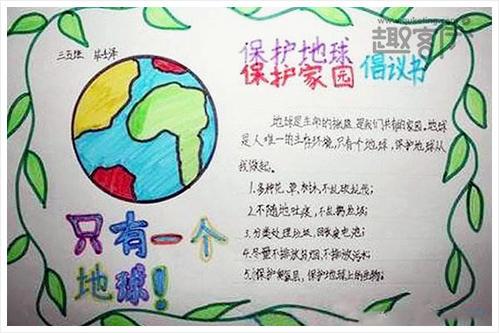 趣客厅
三五班
保护地球
保护家园 倡议书
地球是生命的摇篮,是我们共有的家园。地球
是人唯一的生存环境,只有个地球,保护地球从
我做起。
1.多种花、草、树木,不乱砍乱伐;
2.不随地吐痰,不乱扔垃圾;
3.分类处理垃圾,回收废电池;
4.尽量不排放 不排放污水
5.保护 保护地球上的生物;
只有一个
地球!